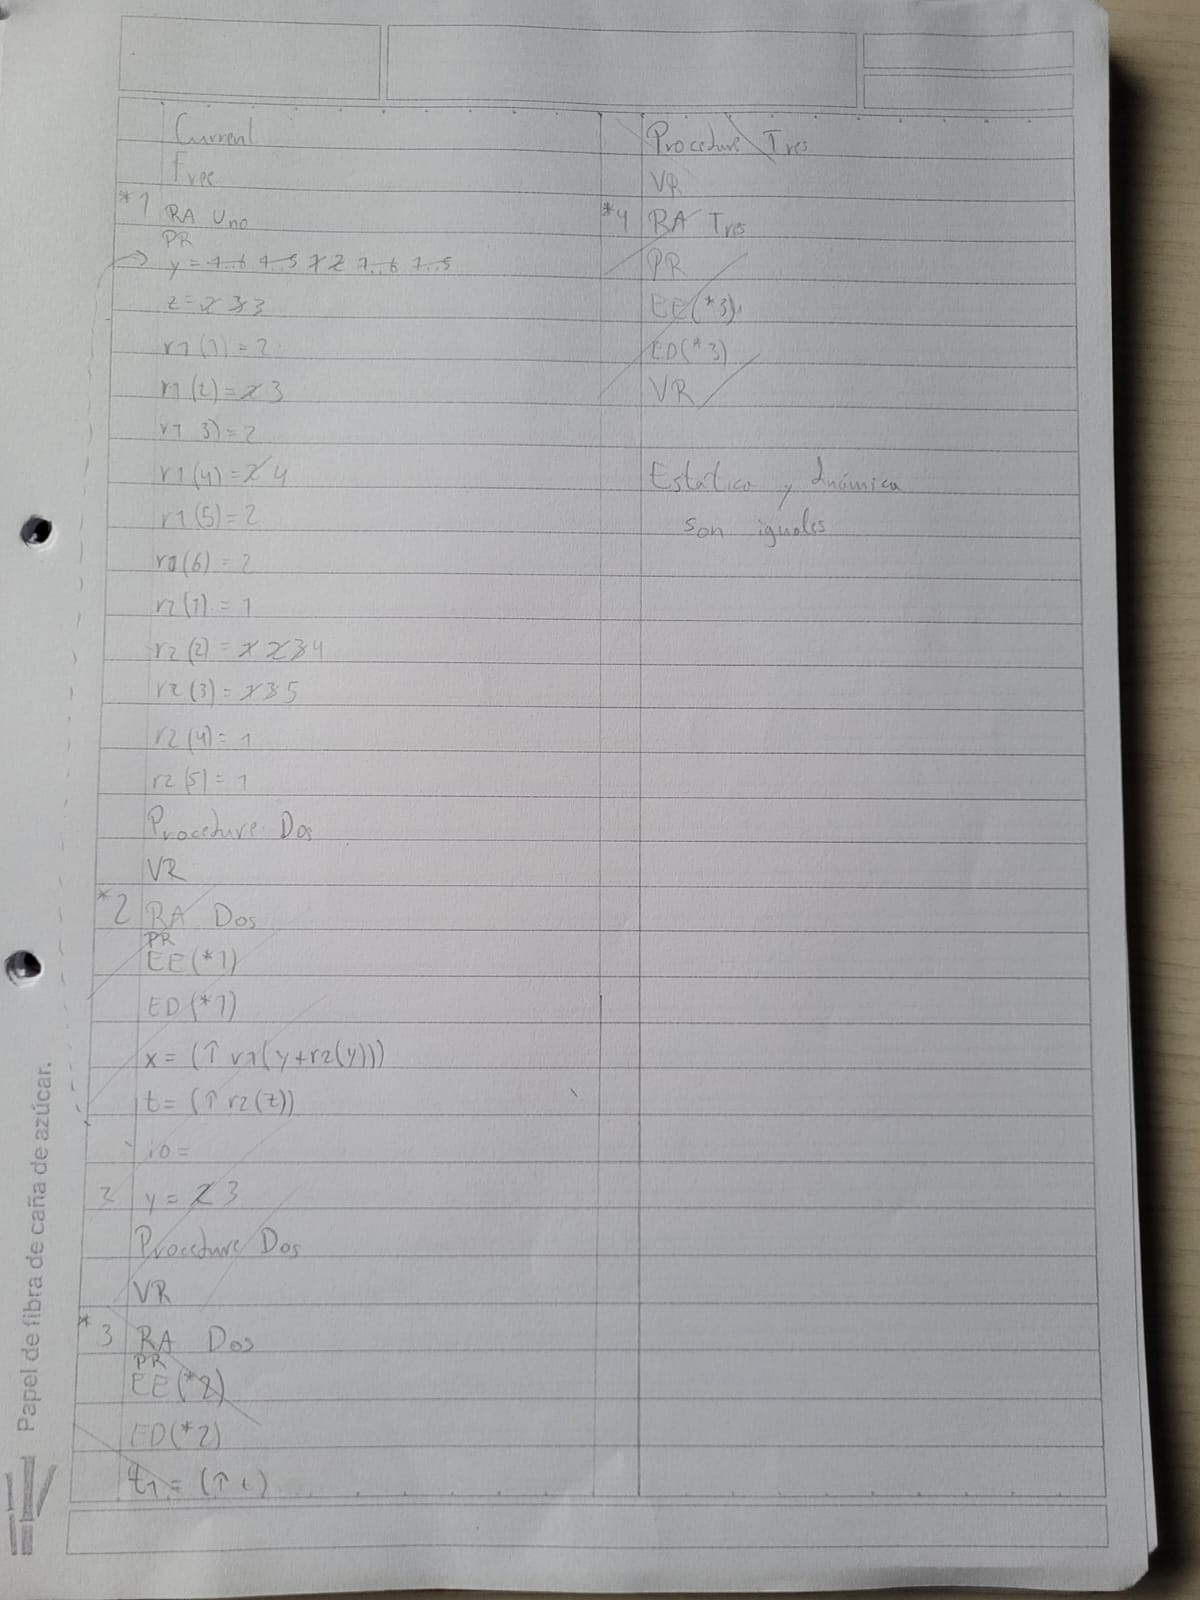 Current
Free
*1 RA Uno
PR
y = 1..6 1..5 1 2 1..6 1..5
z = 2 3 3
r1(1) = 2
r1(2) = 2 3
r1 3) = 2
r1(4) = 2 4
r1(5) = 2
r1(6) = 2
r2(1) = 1
r2(2) = 1 2 3 4
r2(3) = 1 3 5
r2(4) = 1
r2(5) = 1
Procedure Dos
VR
*2 RA Dos
PR
EE(*1)
ED(*1)
x = (↑ r1(y+r2(y)))
t = (↑ r2(z))
io =
y = 2 3
Procedure Dos
VR
*3 RA Dos
PR
EE(*2)
ED(*2)
t1 = (↑ t)
Procedure Tres
VR
*4 RA Tres
PR
EE(*3)
ED(*3)
VR
Estática y dinámica
son iguales
Papel de fibra de caña de azúcar.